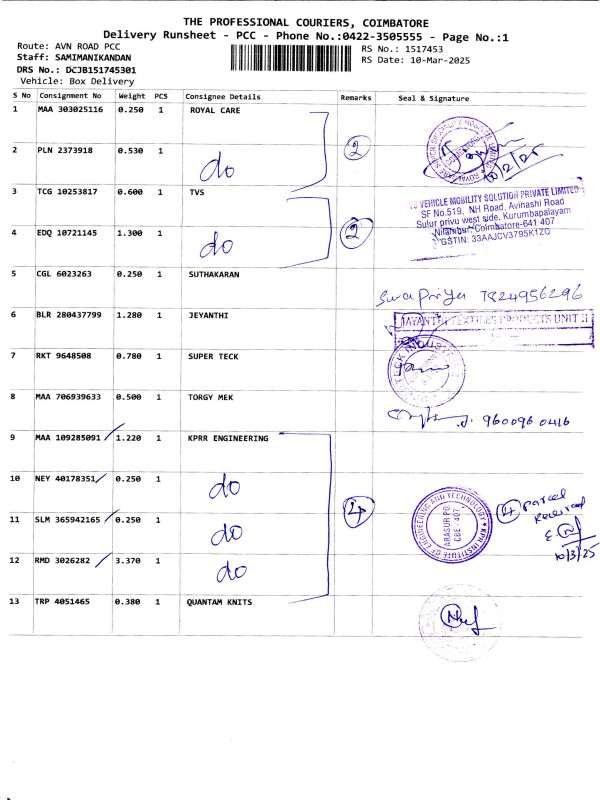 THE PROFESSIONAL COURIERS, COIMBATORE
Delivery Runsheet - PCC - Phone No.:0422-3505555 - Page No.:1
Route: AVN ROAD PCC
RS No.: 1517453
Staff: SAMIMANIKANDAN
RS Date: 10-Mar-2025
DRS No.: DCJB151745301
Vehicle: Box Delivery
S No Consignment No Weight PCS Consignee Details Remarks Seal & Signature
1 MAA 303025116 0.250 1 ROYAL CARE
2 PLN 2373918 0.530 1 do 2
3 TCG 10253817 0.600 1 TVS
VEHICLE MOBILITY SOLUTION PRIVATE LIMITED
SF No.519, NH Road, Avinashi Road
Sulur privu west side, Kurumbapalayam
Nilambur, Coimbatore-641 407
GSTIN: 33AAJCV3795K1ZO
4 EDQ 10721145 1.300 1 do 2
5 CGL 6023263 0.250 1 SUTHAKARAN
Priya 7824956296
6 BLR 280437799 1.280 1 JEYANTHI
JAYANTHI TEXTILES PRODUCTS UNIT II
7 RKT 9648508 0.780 1 SUPER TECK
8 MAA 706939633 0.500 1 TORGY MEK
960096 0416
9 MAA 109285091 1.220 1 KPRR ENGINEERING
10 NEY 40178351 0.250 1 do
11 SLM 365942165 0.250 1 do 4
KPR INSTITUTE OF ENGINEERING AND TECHNOLOGY
ARASUR PO.
CBE - 407
4 parcel
Received
10/3/25
12 RMD 3026282 3.370 1 do
13 TRP 4051465 0.380 1 QUANTAM KNITS